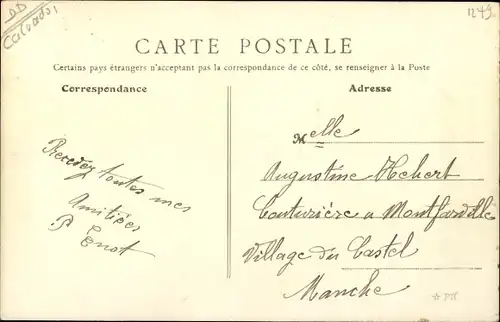 DD
Calvados
1249
CARTE POSTALE
Certains pays étrangers n'acceptant pas la correspondance de ce côté, se renseigner à la Poste
Correspondance
Adresse
Melle
Augustine Hebert
Couturière a Montfarville
Village du Castel
Manche
Recevez toutes mes
Amitiées
P Enot